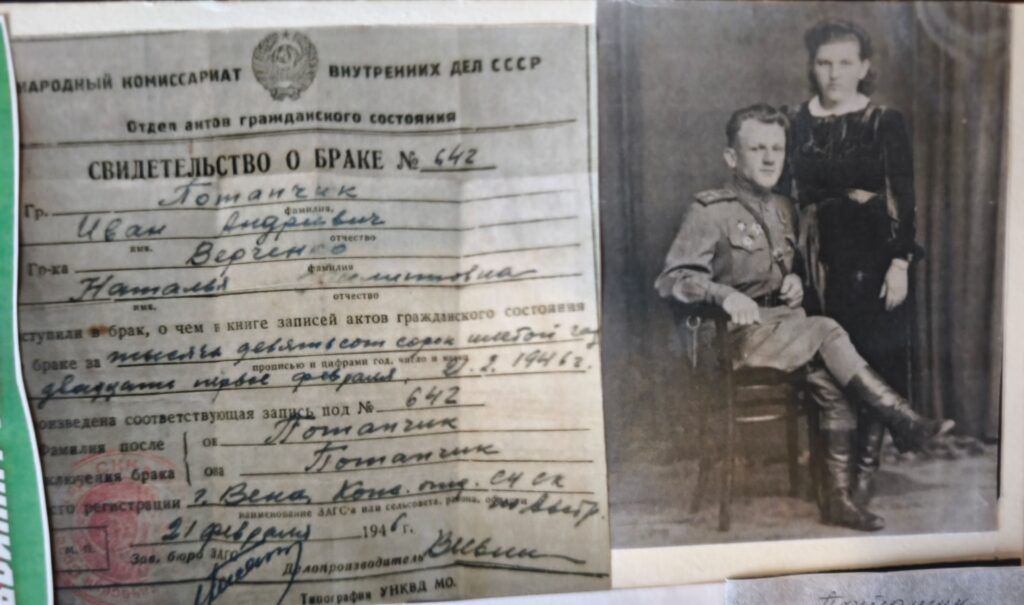 НАРОДНЫЙ КОМИССАРИАТ ВНУТРЕННИХ ДЕЛ СССР
Отдел актов гражданского состояния
СВИДЕТЕЛЬСТВО О БРАКЕ № 642
Гр. Потапчик
фамилия,
Иван Андреевич
имя, отчество
Гр-ка Верченко
фамилия
Наталья
имя, отчество
ступили в брак, о чем в книге записей актов гражданского состояния
браке за тысяча девятьсот сорок шестой год
прописью и цифрами год, число и месяц
двадцать первое февраля, 21.2.1946 г.
оизведена соответствующая запись под № 642
Фамилия после он Потапчик
ключения брака она Потапчик
сто регистрации г. Вена, Конс. отд. СЧ СК
наименование ЗАГС'а или сельсовета, района, области
21 февраля 1946 г.
м. п. Зав. бюро ЗАГС
Делопроизводитель
Типография УНКВД МО.
Потапчик